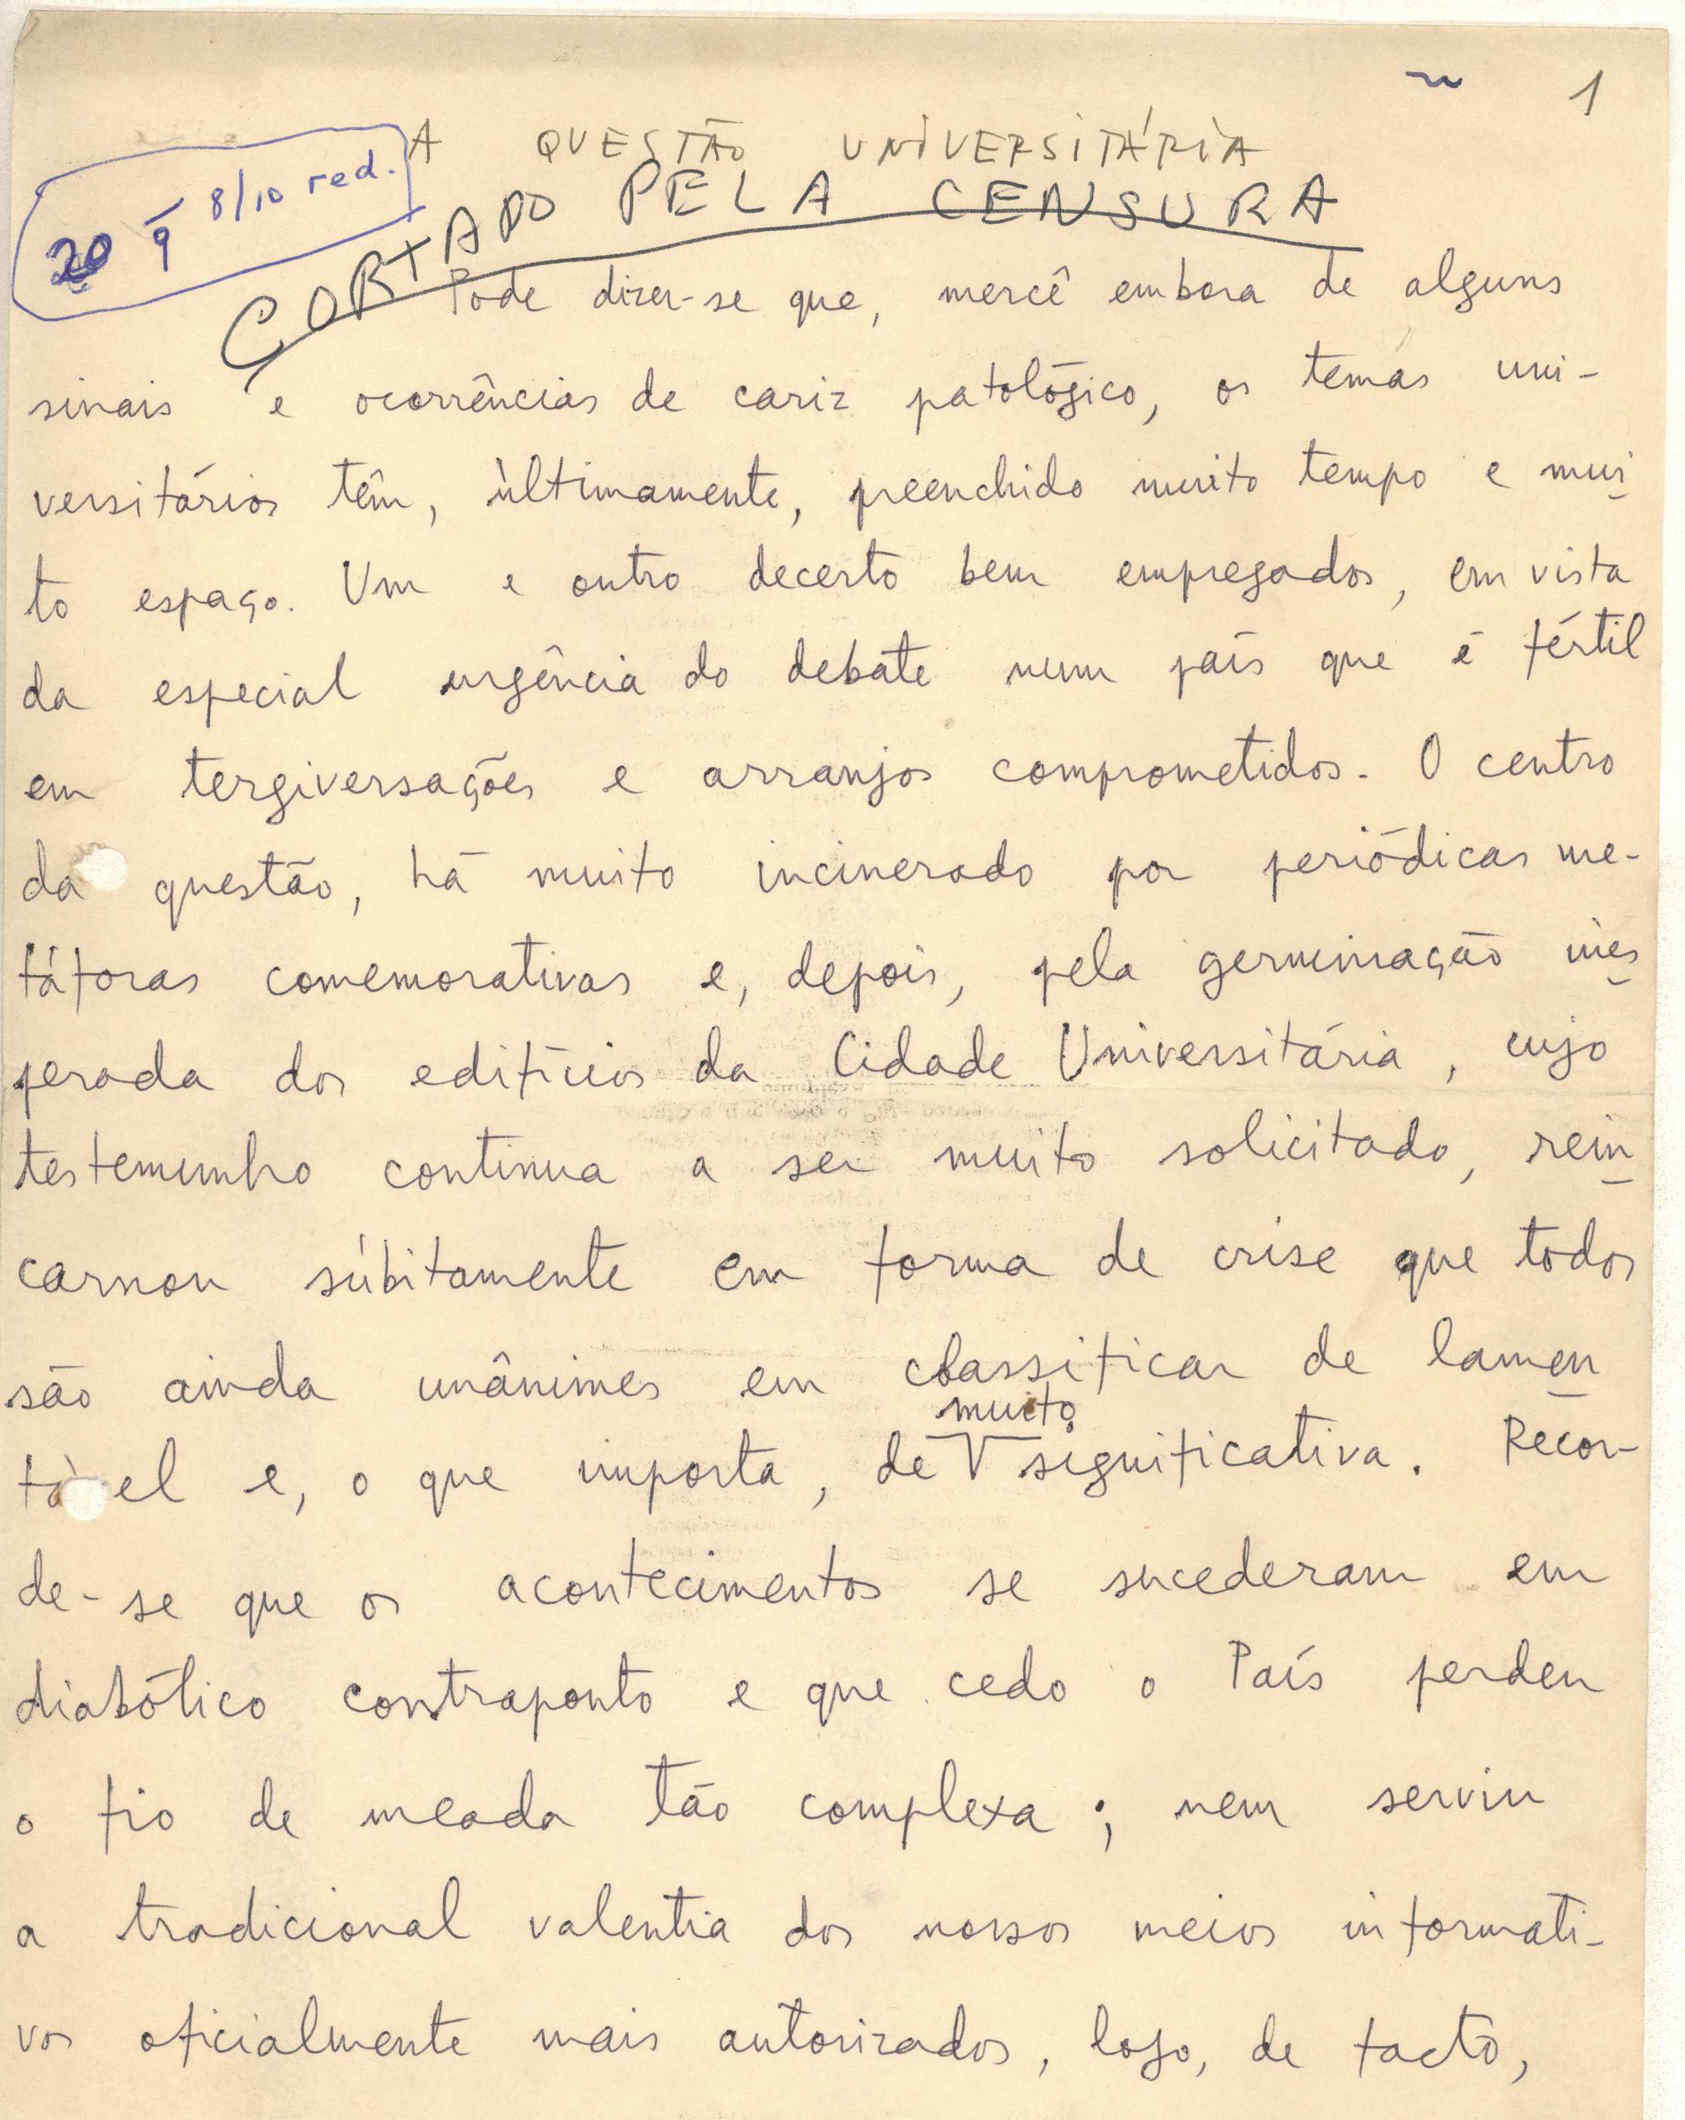 1
A QUESTÃO UNIVERSITÁRIA
20 9 8/10 red.
CORTADO PELA CENSURA
Pode dizer-se que, mercê embora de alguns
sinais e ocorrências de cariz patológico, os temas uni-
versitários têm, ùltimamente, preenchido muito tempo e mui
to espaço. Um e outro decerto bem empregados, em vista
da especial urgência do debate num país que é fértil
em tergiversações e arranjos comprometidos. O centro
da questão, há muito incinerado por periódicas me-
táforas comemorativas e, depois, pela germinação ines
perada dos edifícios da Cidade Universitária, cujo
testemunho continua a ser muito solicitado, rein
carnou sùbitamente em forma de crise que todos
são ainda unânimes em classificar de lamen
tável e, o que importa, de muito significativa. Recor-
de-se que os acontecimentos se sucederam em
diabólico contraponto e que cedo o País perdeu
o fio de meada tão complexa; nem serviu
a tradicional valentia dos nossos meios informati-
vos oficialmente mais autorizados, logo, de facto,